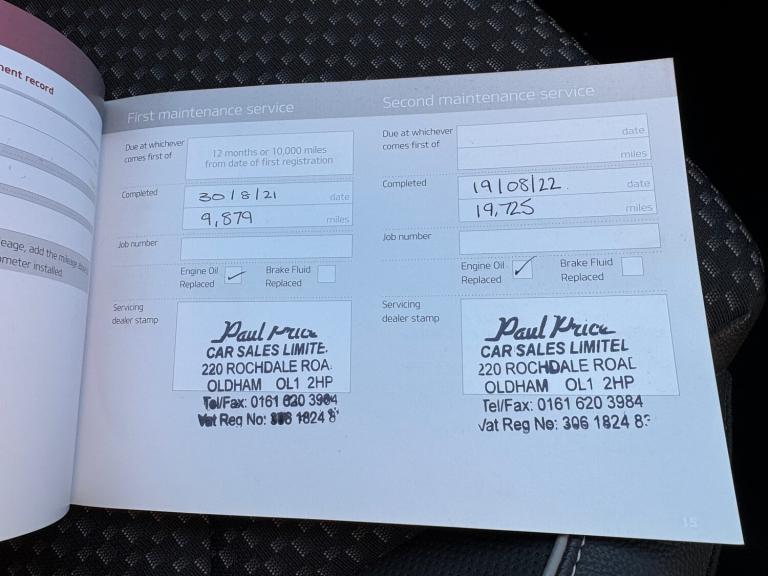 ment record
eage, add the mileage
ometer installed.
First maintenance service
Due at whichever
comes first of
12 months or 10,000 miles
from date of first registration
Completed
30/8/21 date
9,879 miles
Job number
Engine Oil
Replaced
Brake Fluid
Replaced
Servicing
dealer stamp
Paul Price
CAR SALES LIMITE
220 ROCHDALE ROA
OLDHAM OL1 2HP
Tel/Fax: 0161 620 3984
Vat Reg No: 1824 8
Second maintenance service
Due at whichever
comes first of
date
miles
Completed
19/08/22 date
19,725 miles
Job number
Engine Oil
Replaced
Brake Fluid
Replaced
Servicing
dealer stamp
Paul Price
CAR SALES LIMITE
220 ROCHDALE ROAD
OLDHAM OL1 2HP
Tel/Fax: 0161 620 3984
Vat Reg No: 306 1824 8
15